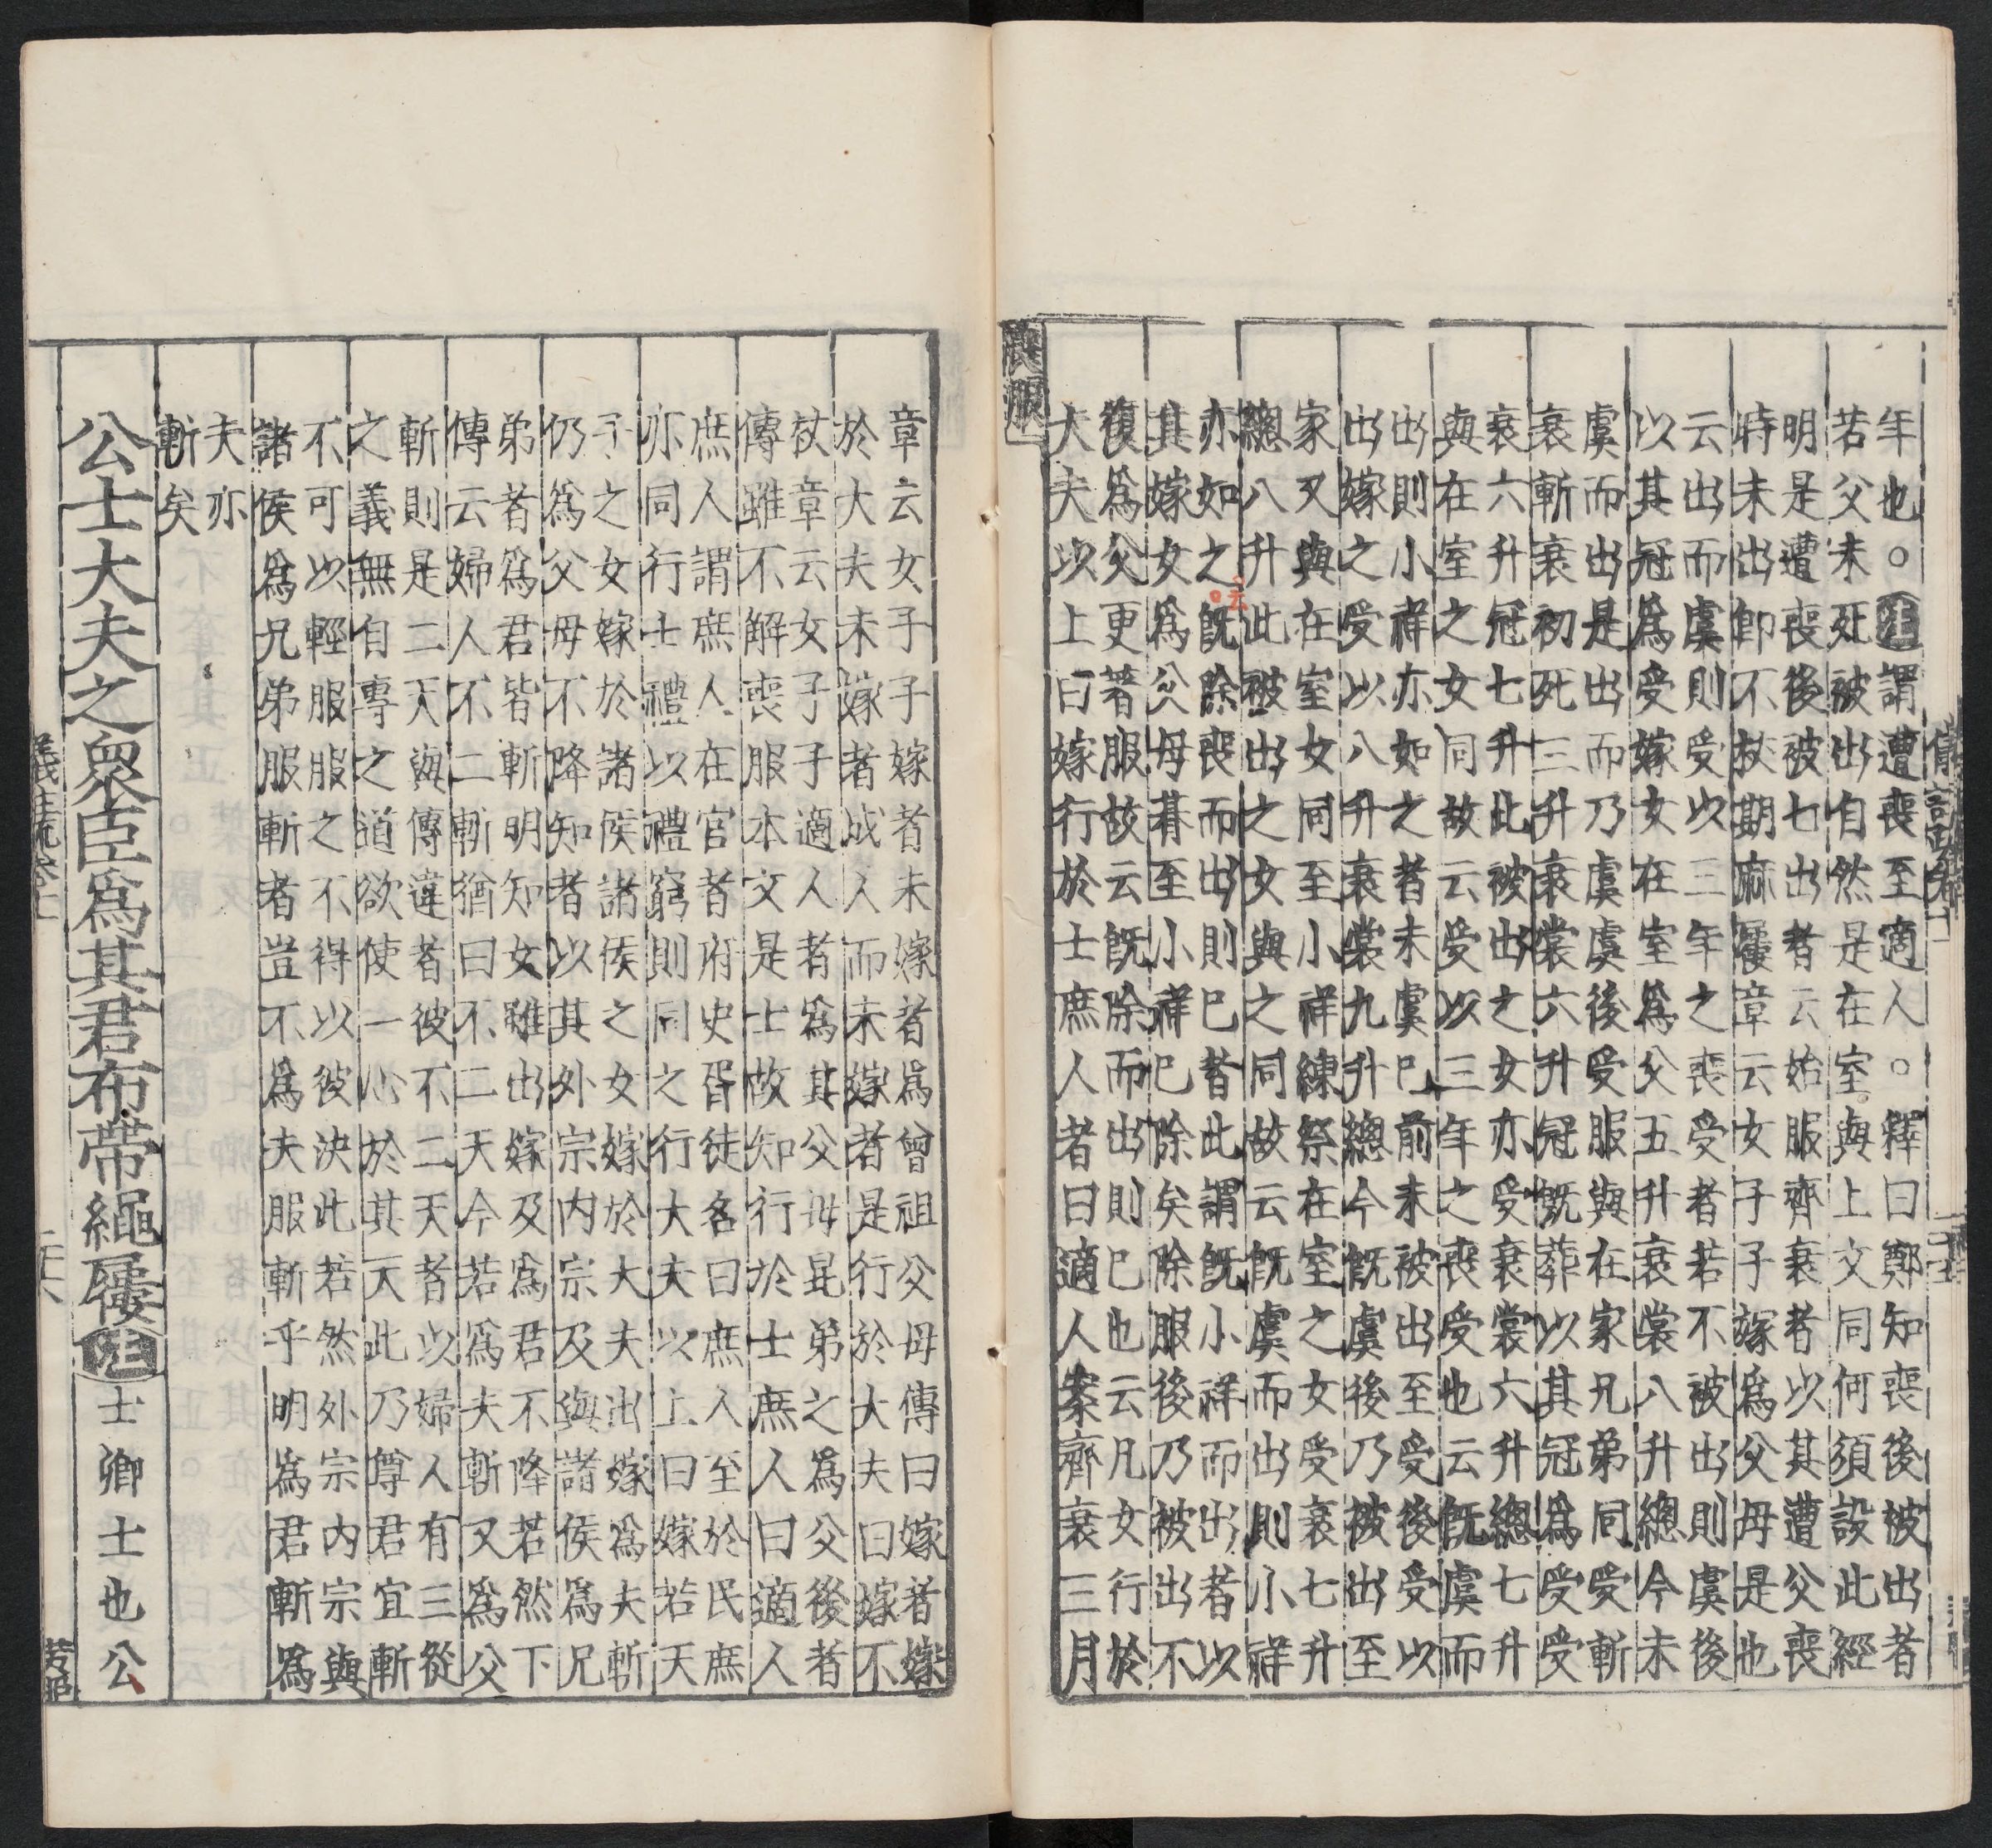 年也。注謂遭喪至適人。釋曰鄭知喪後被出者
若父未死被出自然是在室與上文同何須設此經
明是遭喪後被七出者云始服齊衰者以其遭父喪
時未出即不杖期麻屨章云女子子嫁爲父母是也
云出而虞則受以三年之喪受者若不被出則虞後
以其冠爲受嫁女在室爲父五升衰裳八升總今未
虞而出是出而乃虞虞後受服與在家兄弟同受斬
衰斬衰初死三升衰裳六升冠旣葬以其冠爲受受
衰六升冠七升此被出之女亦受衰裳六升總七升
與在室之女同故云受以三年之喪受也云旣虞而
出則小祥亦如之者未虞已前未被出至受後受以
出嫁之受以八升衰裳九升總今旣虞後乃被出至
家又與在室女同至小祥練祭在室之女受衰七升
總八升此被出之女與之同故云旣虞而出則小祥
亦如之旣除喪而出則已者此謂旣小祥而出者以
其嫁女爲父母朞至小祥已除矣除服後乃被出不
復爲父更著服故云旣除而出則已也云凡女行於
大夫以上曰嫁行於士庶人者曰適人案齊衰三月
喪服
章云女子子嫁者未嫁者爲曾祖父母傳曰嫁者嫁
於大夫未嫁者成人而未嫁者是行於大夫曰嫁不
杖章云女子子適人者爲其父母昆弟之爲父後者
傳雖不解喪服本文是士故知行於士庶人曰適人
庶人謂庶人在官者府史胥徒名曰庶人至於民庶
亦同行士禮以禮窮則同之行大夫以上曰嫁若天
子之女嫁於諸侯諸侯之女嫁於大夫出嫁爲夫斬
仍爲父母不降知者以其外宗内宗及與諸侯爲兄
弟者爲君皆斬明知女雖出嫁及爲君不降若然下
傳云婦人不二斬猶曰不二天今若爲夫斬又爲父
斬則是二天與傳違者彼不二天者以婦人有三從
之義無自專之道欲使一心於其天此乃尊君宜斬
不可以輕服服之不得以彼決此若然外宗内宗與
諸侯爲兄弟服斬者豈不爲夫服斬乎明爲君斬爲
夫亦
斬矣
公士大夫之衆臣爲其君布帶繩屨注士卿士也公